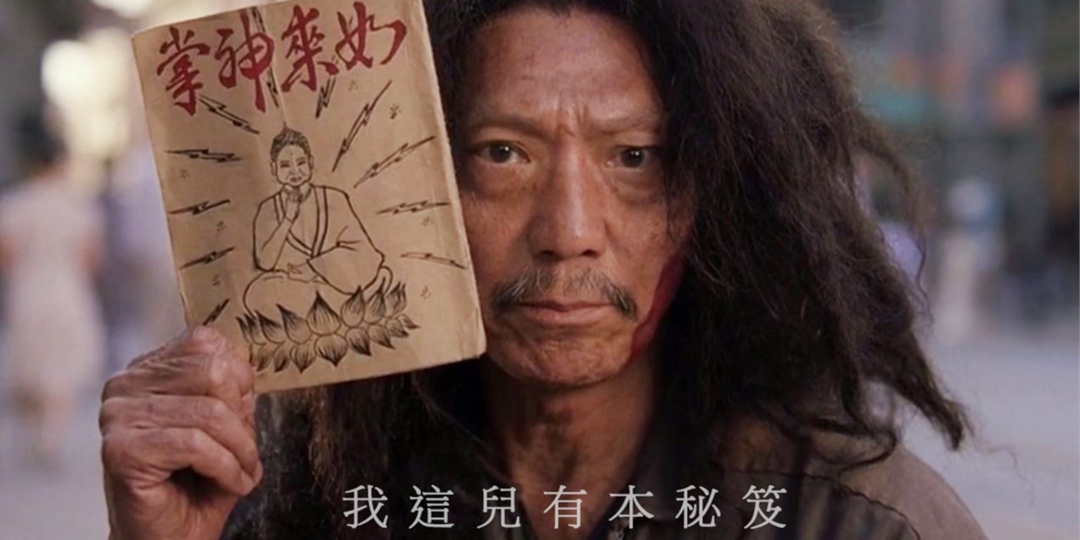 如來神掌
我這兒有本秘笈